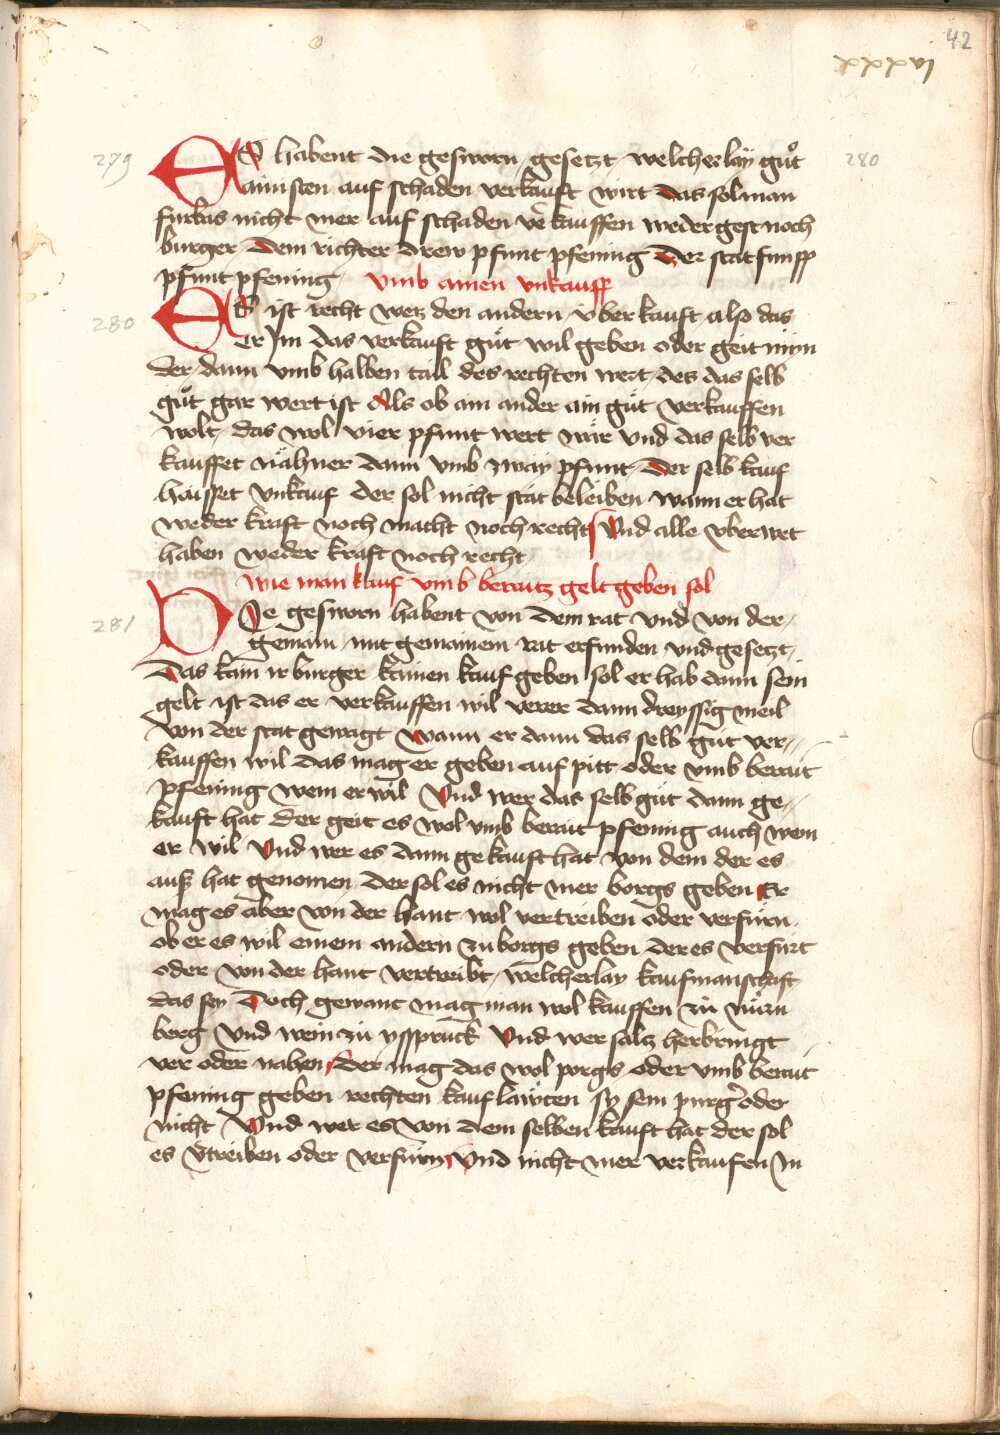 42
xxxvj
279
280
ES habent die gesworn gesetzt welcherlay guͦt
ainisten auf schaden verkauft wirt das sol man
furbas nicht mer auf schaden v̄kauffen weder gest noch
burger dem richter drew pfunt pfening der stat funff
pfunt pfening vmb ainen vnkauff
280
ES ist recht wer den andern vberkauft also das
er Im das verkauft guͦt wil geben oder geit myn
der dann vmb halben tail des rechten wert des das selb
guͦt gar wert ist Als ob ain ander ain guͦt verkauffen
wolt das wol vier pfunt wert wär vnd das selb ver
kauffet nähner dann vmb zway pfunt der selb kauf
haisset vnkauf der sol nicht stät beleiben wann er hat
weder kraft noch macht noch recht Vnd alle vberwet
haben weder kraft noch recht
wie man kauf vmb beraitz gelt geben sol
281
DJe gesworn habent von dem rat vnd von der
gemain mit gemainem rat erfunden vnd gesetzt
Das kain ir burger kainen kauf geben sol er hab dann sein
gelt ist das er verkauffen wil verer dann dreyssig meil
von der stat gewagt wann er dann das selb guͦt ver
kauffen wil das mag er geben auf pitt oder vmb berait
pfening wem er wil Vnd wer das selb guͦt dann ge
kauft hat der geit es wol vmb berait pfening auch wem
er wil Vnd wer es dann gekauft hat von dem der es
auß hat genomen der sol es nicht mer borgs geben Er
mag es aber von der hant wol vertreiben oder verfurn
ob er es wil einem andern zu borgs geben der es verfurt
oder von der hant vertreibt welcherlay kaufmanschaft
das sey Doch gewant mag man wol kauffen zu Nürn
berg vnd wein zu yssprück Vnd wer saltz herbringt
ver oder nahen der mag das wol porgs oder vmb berait
pfening geben rechten kauflawten sy sein purg̉ oder
nicht Vnd wer es von dem selben kauft hat der sol
es v̄treiben oder verfurn Vnd nicht mer verkaufen In